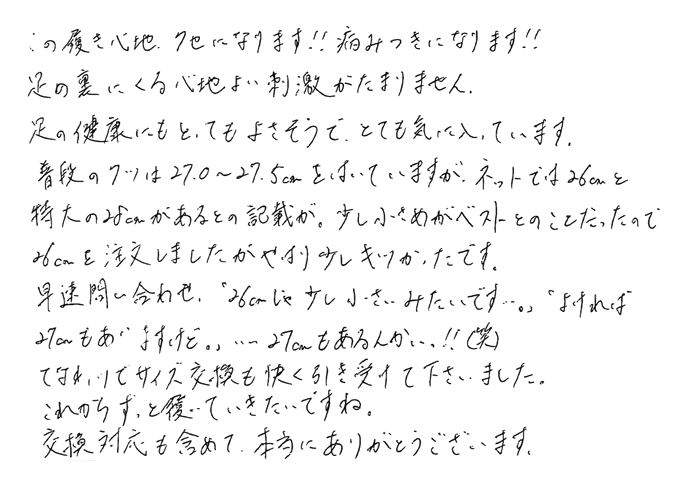 この履き心地、クセになります!!病みつきになります!!
足の裏にくる心地よい刺激がたまりません。
足の健康にもとってもよさそうで、とても気に入っています。
普段のクツは27.0〜27.5cmをはいていますが、ネットでは26cmと
特大の28cmがあるとの記載が。少し小さめがベストとのことだったので
26cmを注文しましたがやはり少しキツかったです。
早速問い合わせ、「26cmじゃ少し小さいみたいです…。」「よければ
27cmもありますけど。」…27cmもあるんかいっ!!(笑)
てなわけでサイズ交換も快く引き受けて下さいました。
これからずっと履いていきたいですね。
交換対応も含めて、本当にありがとうございます。